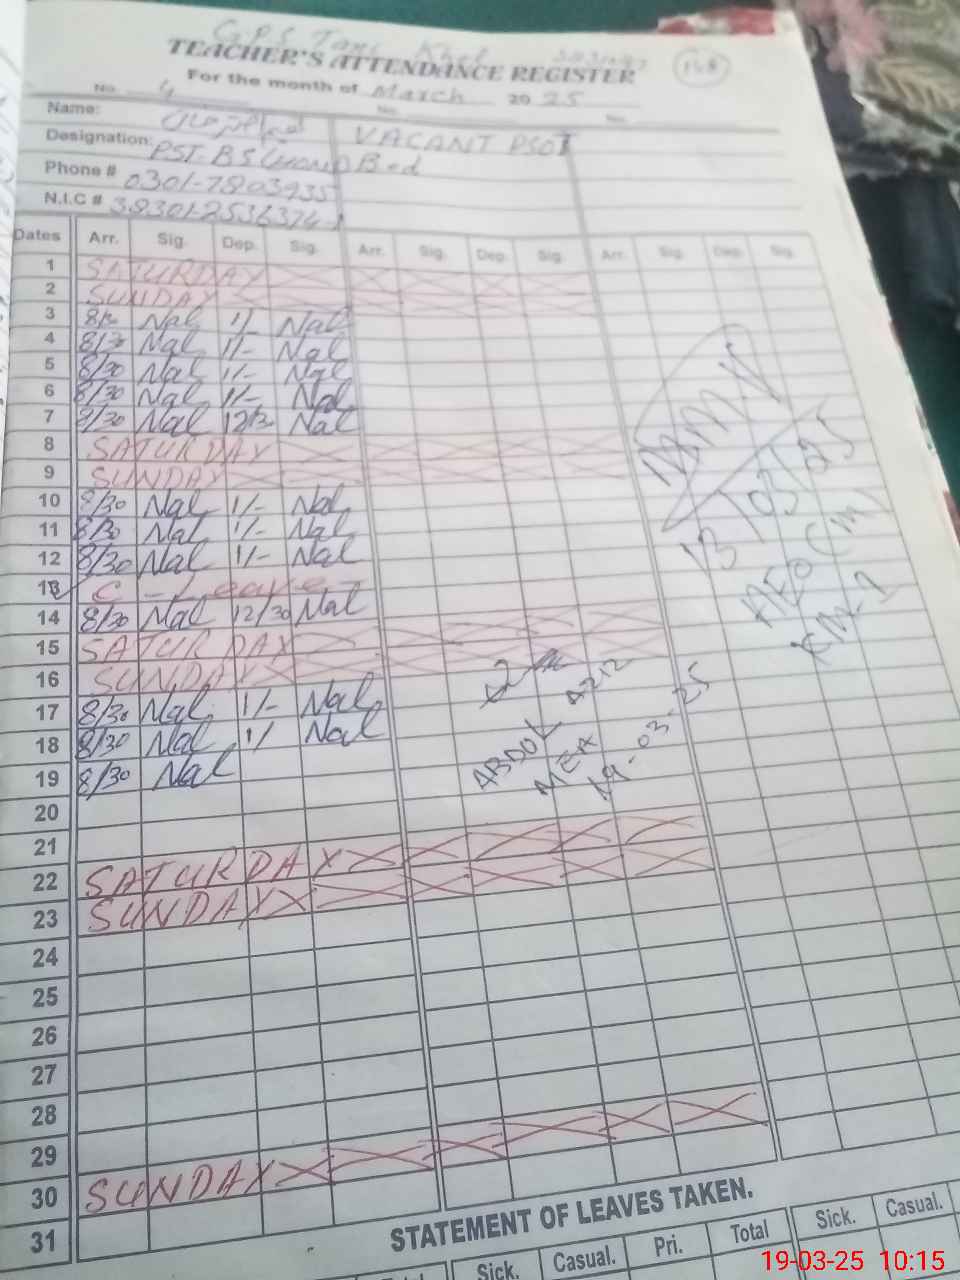 G.P.S Tani Khel
TEACHER'S ATTENDANCE REGISTER
148
For the month of March 2025
No. 4 No. No.
Name: VACANT PSOT
Designation: PST. B.Ed
Phone # 0301-7803935
N.I.C #
Dates Arr. Sig. Dep. Sig. Arr. Sig. Dep. Sig. Arr. Sig. Dep. Sig.
1 SATURDAY
2 SUNDAY
3 8/30 Nal 1/- Nal
4 8/30 Nal 1/- Nal
5 8/30 Nal 1/- Nal
6 8/30 Nal 1/- Nal
7 8/30 Nal 12/30 Nal
8 SATURDAY
9 SUNDAY
10 8/30 Nal 1/- Nal
11 8/30 Nal 1/- Nal
12 8/30 Nal 1/- Nal
13 C - Leave -
14 8/30 Nal 12/30 Nal
15 SATURDAY
16 SUNDAY
17 8/30 Nal 1/- Nal
18 8/30 Nal 1/ Nal
19 8/30 Nal
20
21
22 SATURDAY
23 SUNDAY
24
25
26
27
28
29
30 SUNDAY
31
13/03/25
AEO (M)
ABDUL AZIZ
MEA
19-03-25
STATEMENT OF LEAVES TAKEN.
Sick. Casual. Pri. Total Sick. Casual.
19-03-25 10:15